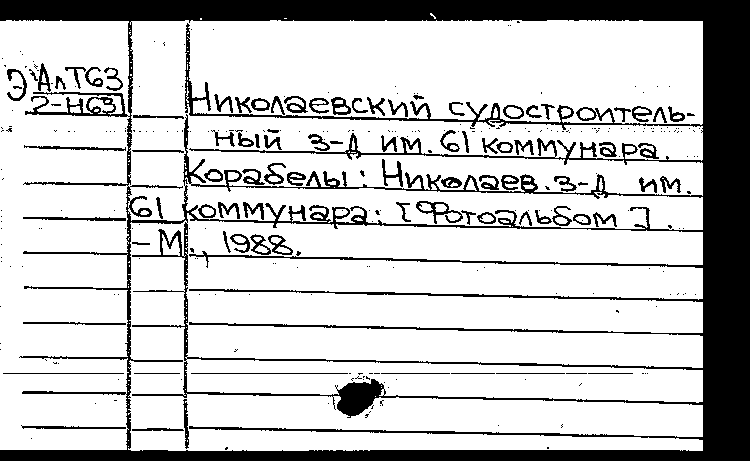 Э АлТ63
2-Н63
Николаевский судостроитель-
ный з-д им. 61 коммунара.
Корабелы: Николаев. з-д им.
61 коммунара: [Фотоальбом].
– М., 1988.